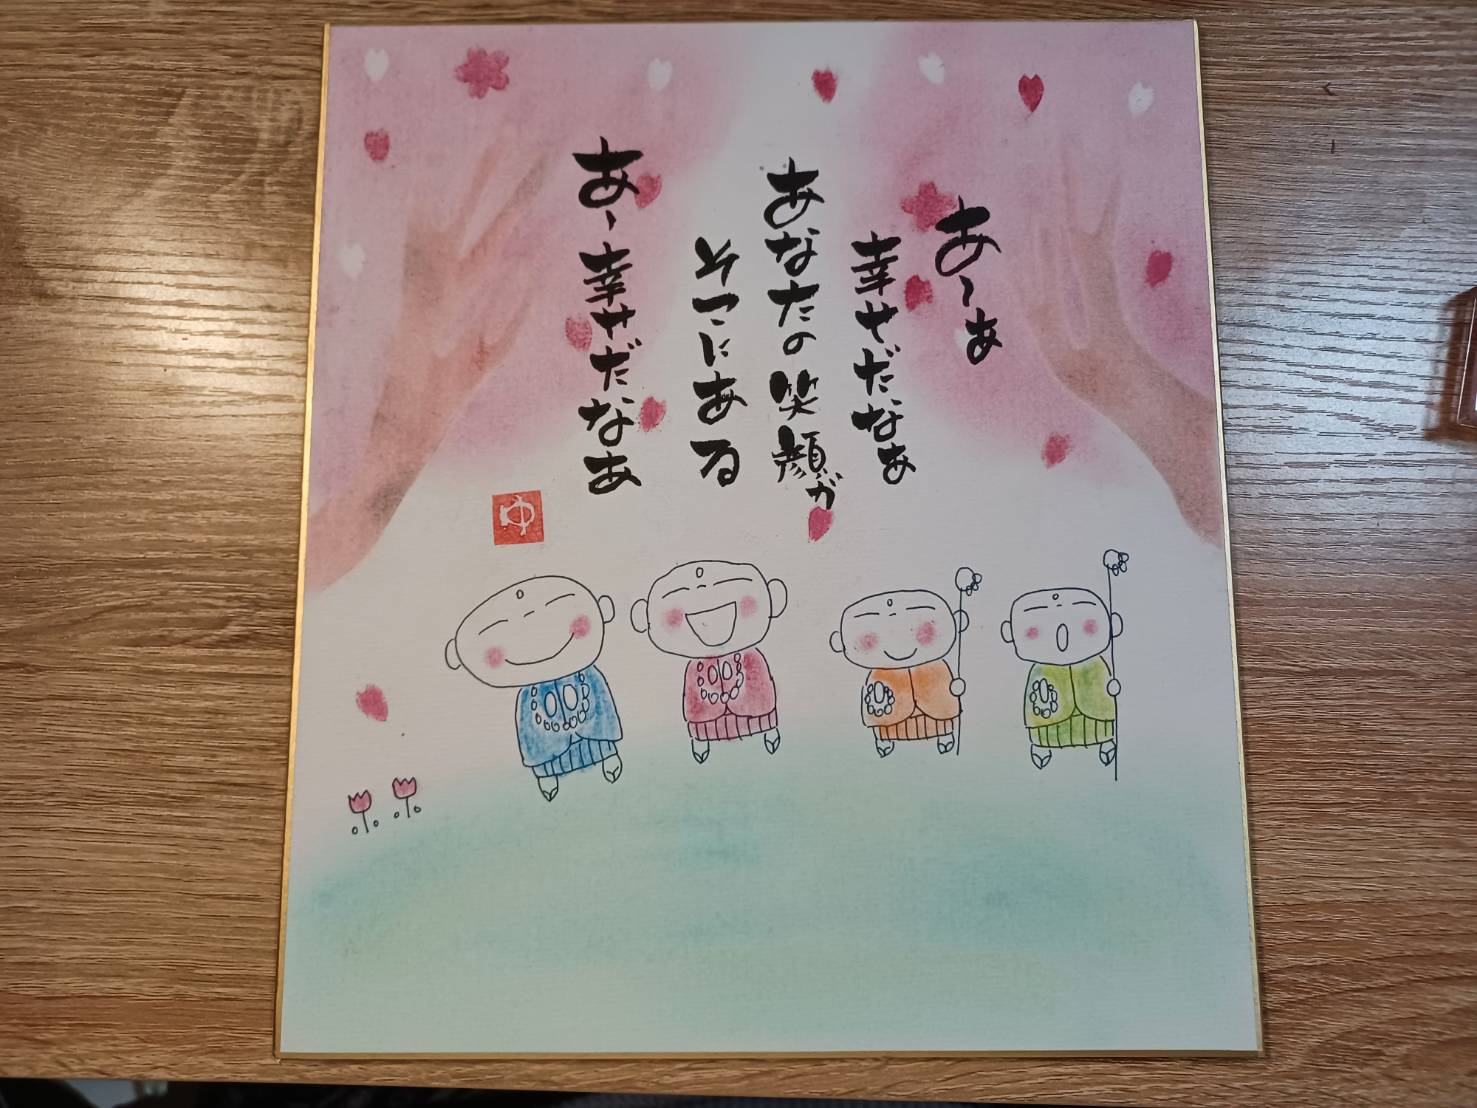 あーあ
幸せだなあ
あなたの笑顔が
そこにある
あー幸せだなあ
ゆ